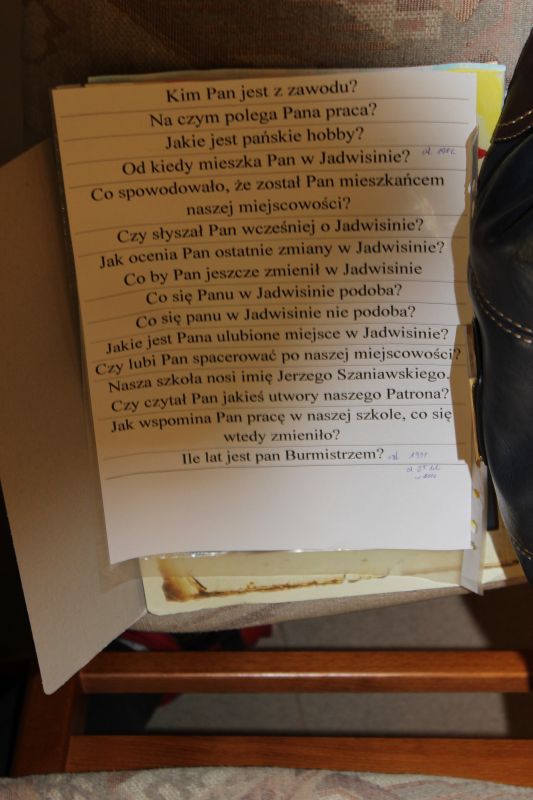 Kim Pan jest z zawodu?
Na czym polega Pana praca?
Jakie jest pańskie hobby?
Od kiedy mieszka Pan w Jadwisinie? od
Co spowodowało, że został Pan mieszkańcem
naszej miejscowości?
Czy słyszał Pan wcześniej o Jadwisinie?
Jak ocenia Pan ostatnie zmiany w Jadwisinie?
Co by Pan jeszcze zmienił w Jadwisinie
Co się Panu w Jadwisinie podoba?
Co się panu w Jadwisinie nie podoba?
Jakie jest Pana ulubione miejsce w Jadwisinie?
Czy lubi Pan spacerować po naszej miejscowości?
Nasza szkoła nosi imię Jerzego Szaniawskiego.
Czy czytał Pan jakieś utwory naszego Patrona?
Jak wspomina Pan pracę w naszej szkole, co się
wtedy zmieniło?
Ile lat jest pan Burmistrzem? od